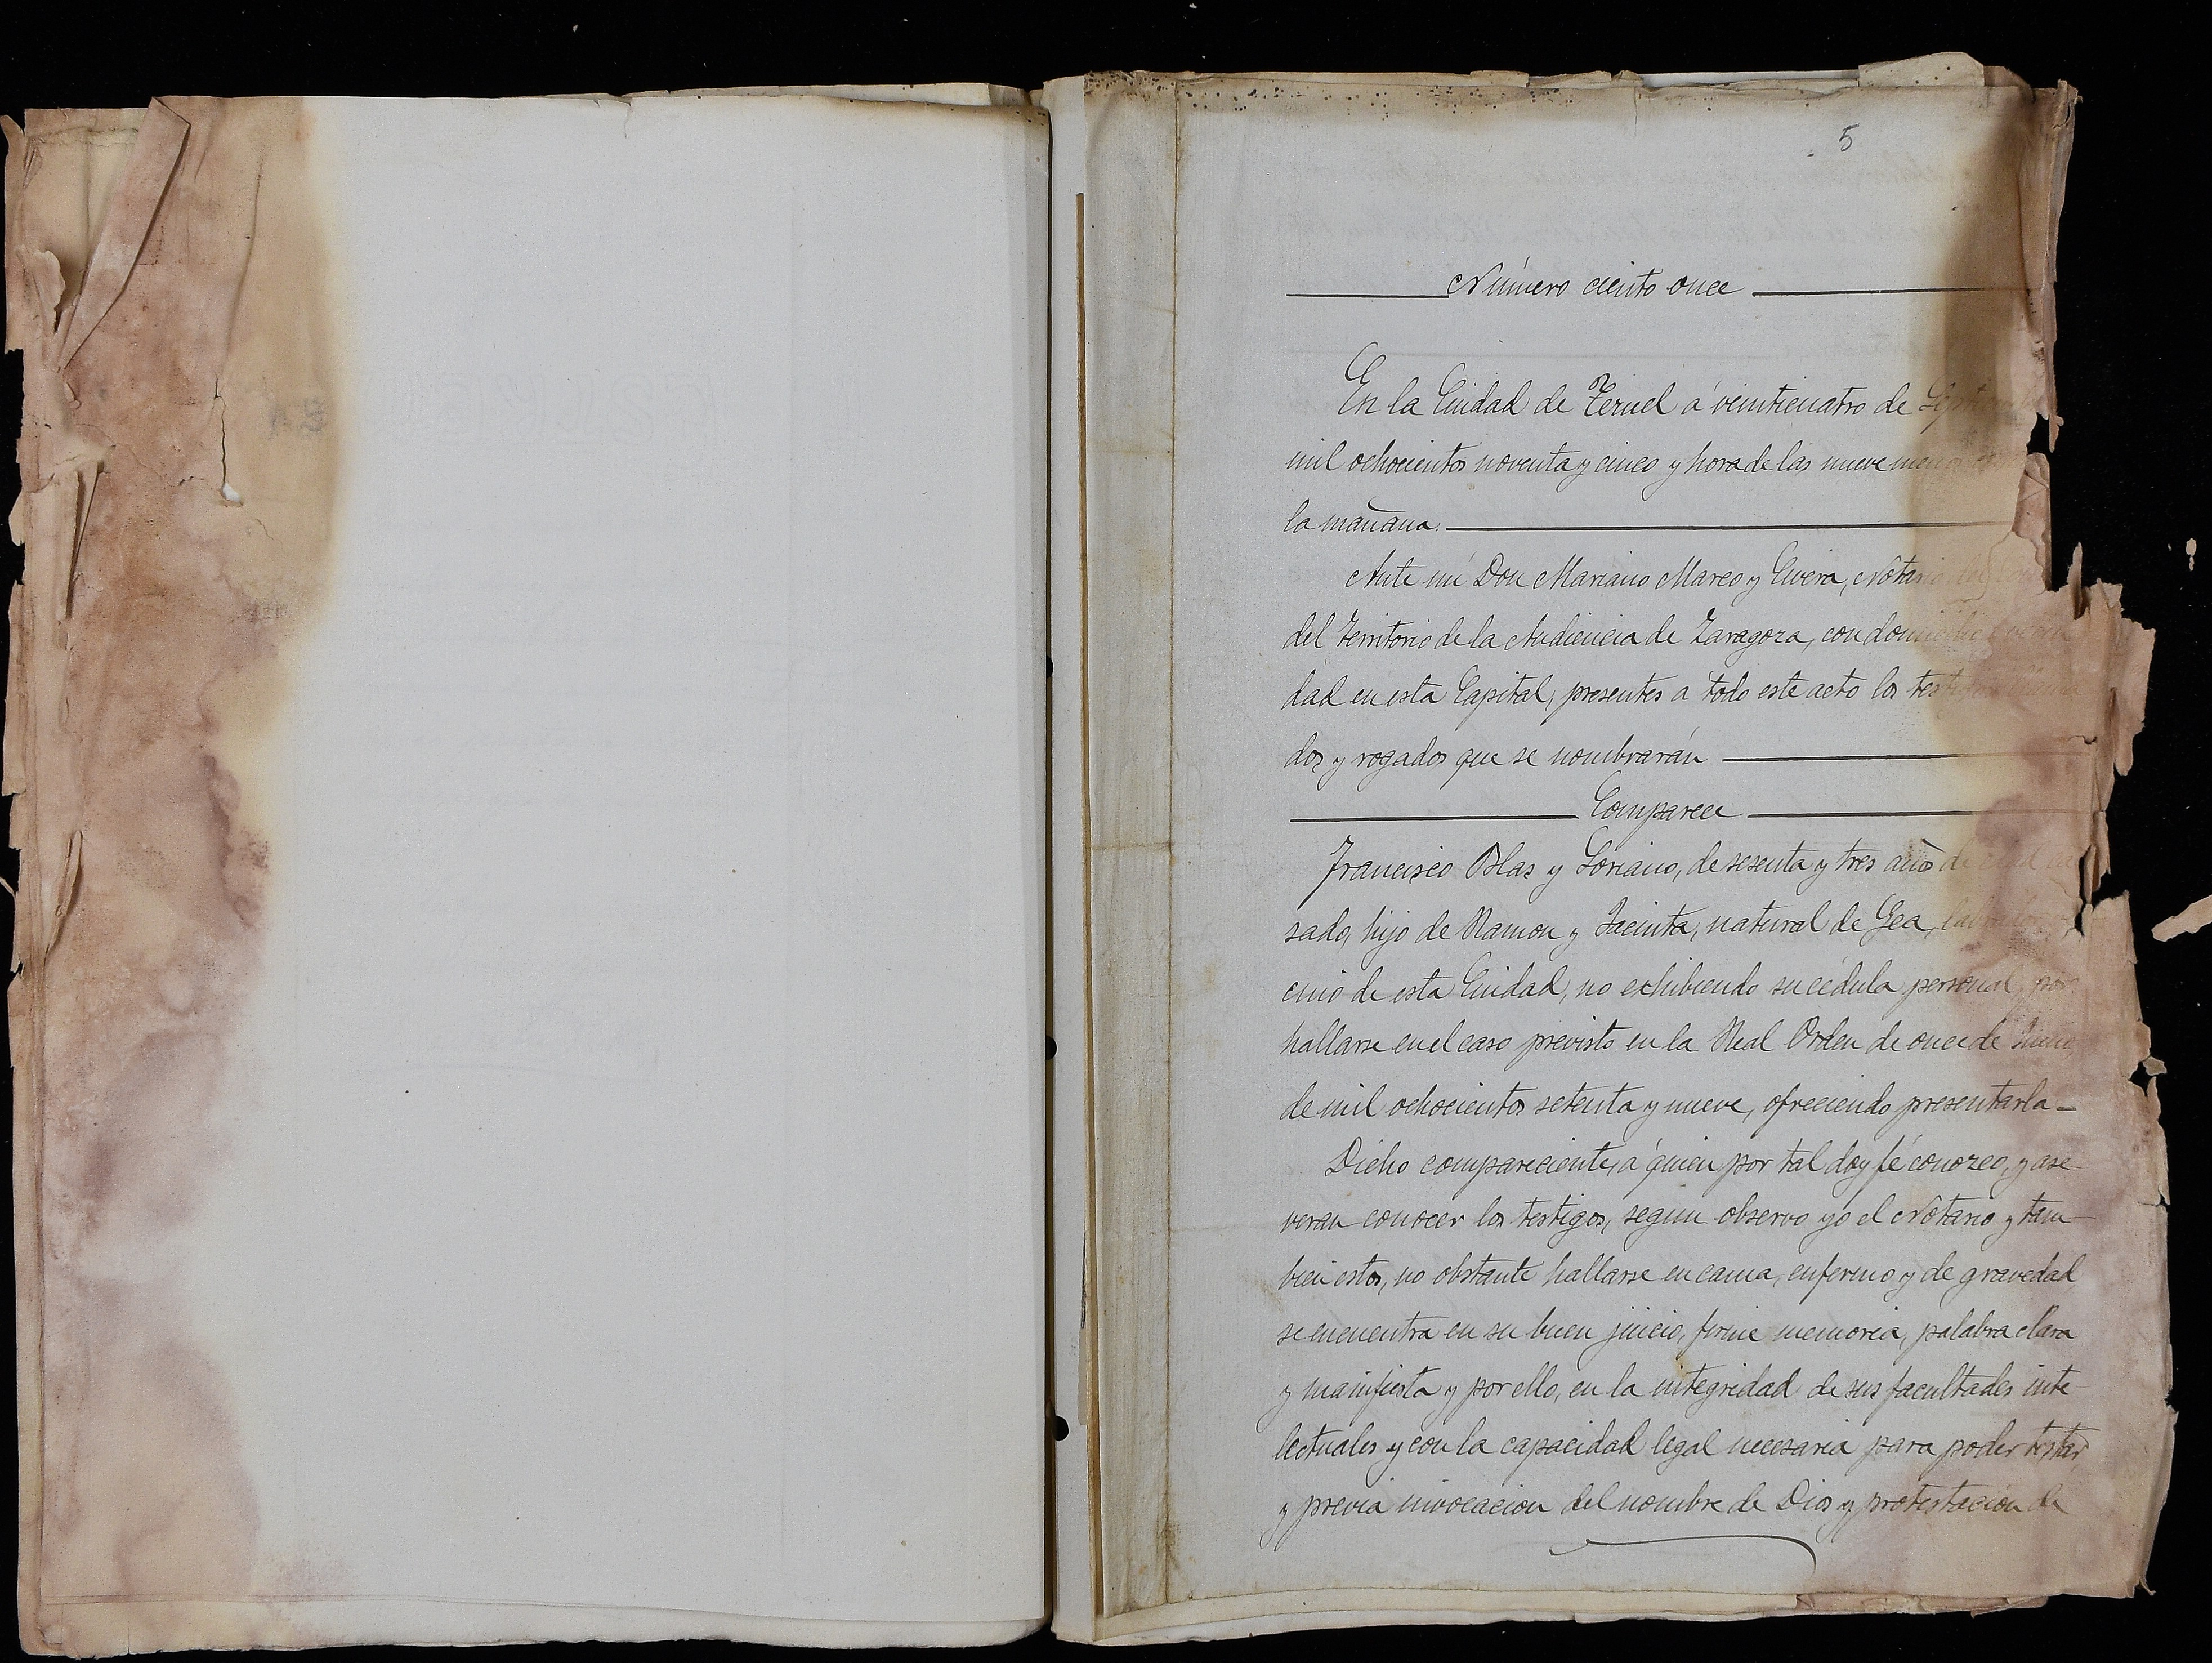 5
Número ciento once
En la Ciudad de Teruel á veinticuatro de
mil ochocientos noventa y cinco y hora de las nueve menos
la mañana.
Ante mí Don Mariano Marco y Civera, Notario
del Territorio de la Audiencia de Zaragoza, con domicilio
dad en esta Capital, presentes a todo este acto los testigos
dos y rogados que se nombrarán
Comparece
Francisco Blas y Soriano, de sesenta y tres años de
sado, hijo de Ramon y Jacinta, natural de Gea,
cino de esta Ciudad, no exhibiendo su cédula personal, por
hallarse en el caso previsto en la Real Orden de once de
de mil ochocientos setenta y nueve, ofreciendo presentarla
Dicho compareciente, á quien por tal doy fé conozco, y ase
veran conocer los testigos, segun observo yo el Notario y tam
bien estos, no obstante hallarse en cama, enfermo y de gravedad,
se encuentra en su buen juicio, firme memoria, palabra clara
y manifiesta y por ello, en la integridad de sus facultades inte
lectuales y con la capacidad legal necesaria para poder testar,
y previa invocacion del nombre de Dios y protestacion de